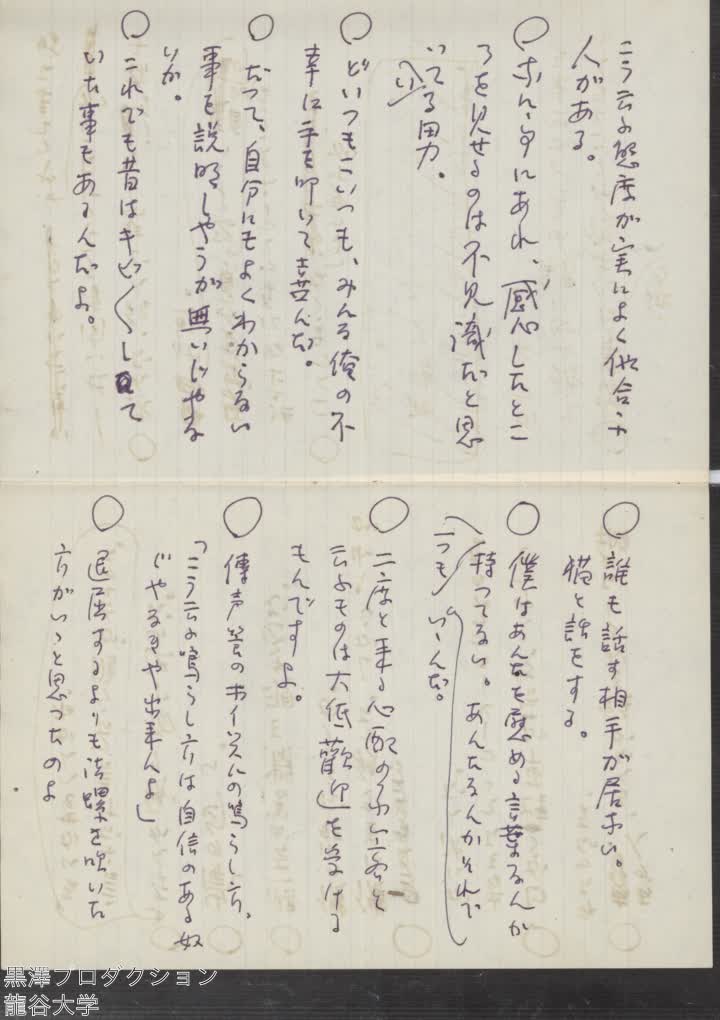 こう云ふ態度が実によく似合ふ
人がある。
○なに事にあれ、感心したとこ
ろを見せるのは不見識だと思
いてる男。
○どいつもこいつも、みんな俺の不
幸に手を叩いて喜んだ。
○だって、自分にもよくわからない
事を説明しやうが無いじやな
いか。
○これでも昔はキビ〱して
いた事もあるんだよ。
○誰も話す相手が居ない。
猫と話をする。
○僕はあんたを慰める言葉なんか
持つてない。あんたなんかそれで
いゝんだ。
○二度と来る心配のない客と
云ふものは大低歓迎を受ける
もんですよ。
○傳声管のホイッスルの鳴らし方、
「こう云ふ鳴らし方は自信のある奴
じやなきや出来んよ」
○退屈するよりも法螺を吹いた
方がいゝと思つたのよ
黒澤プロダクション
龍谷大学